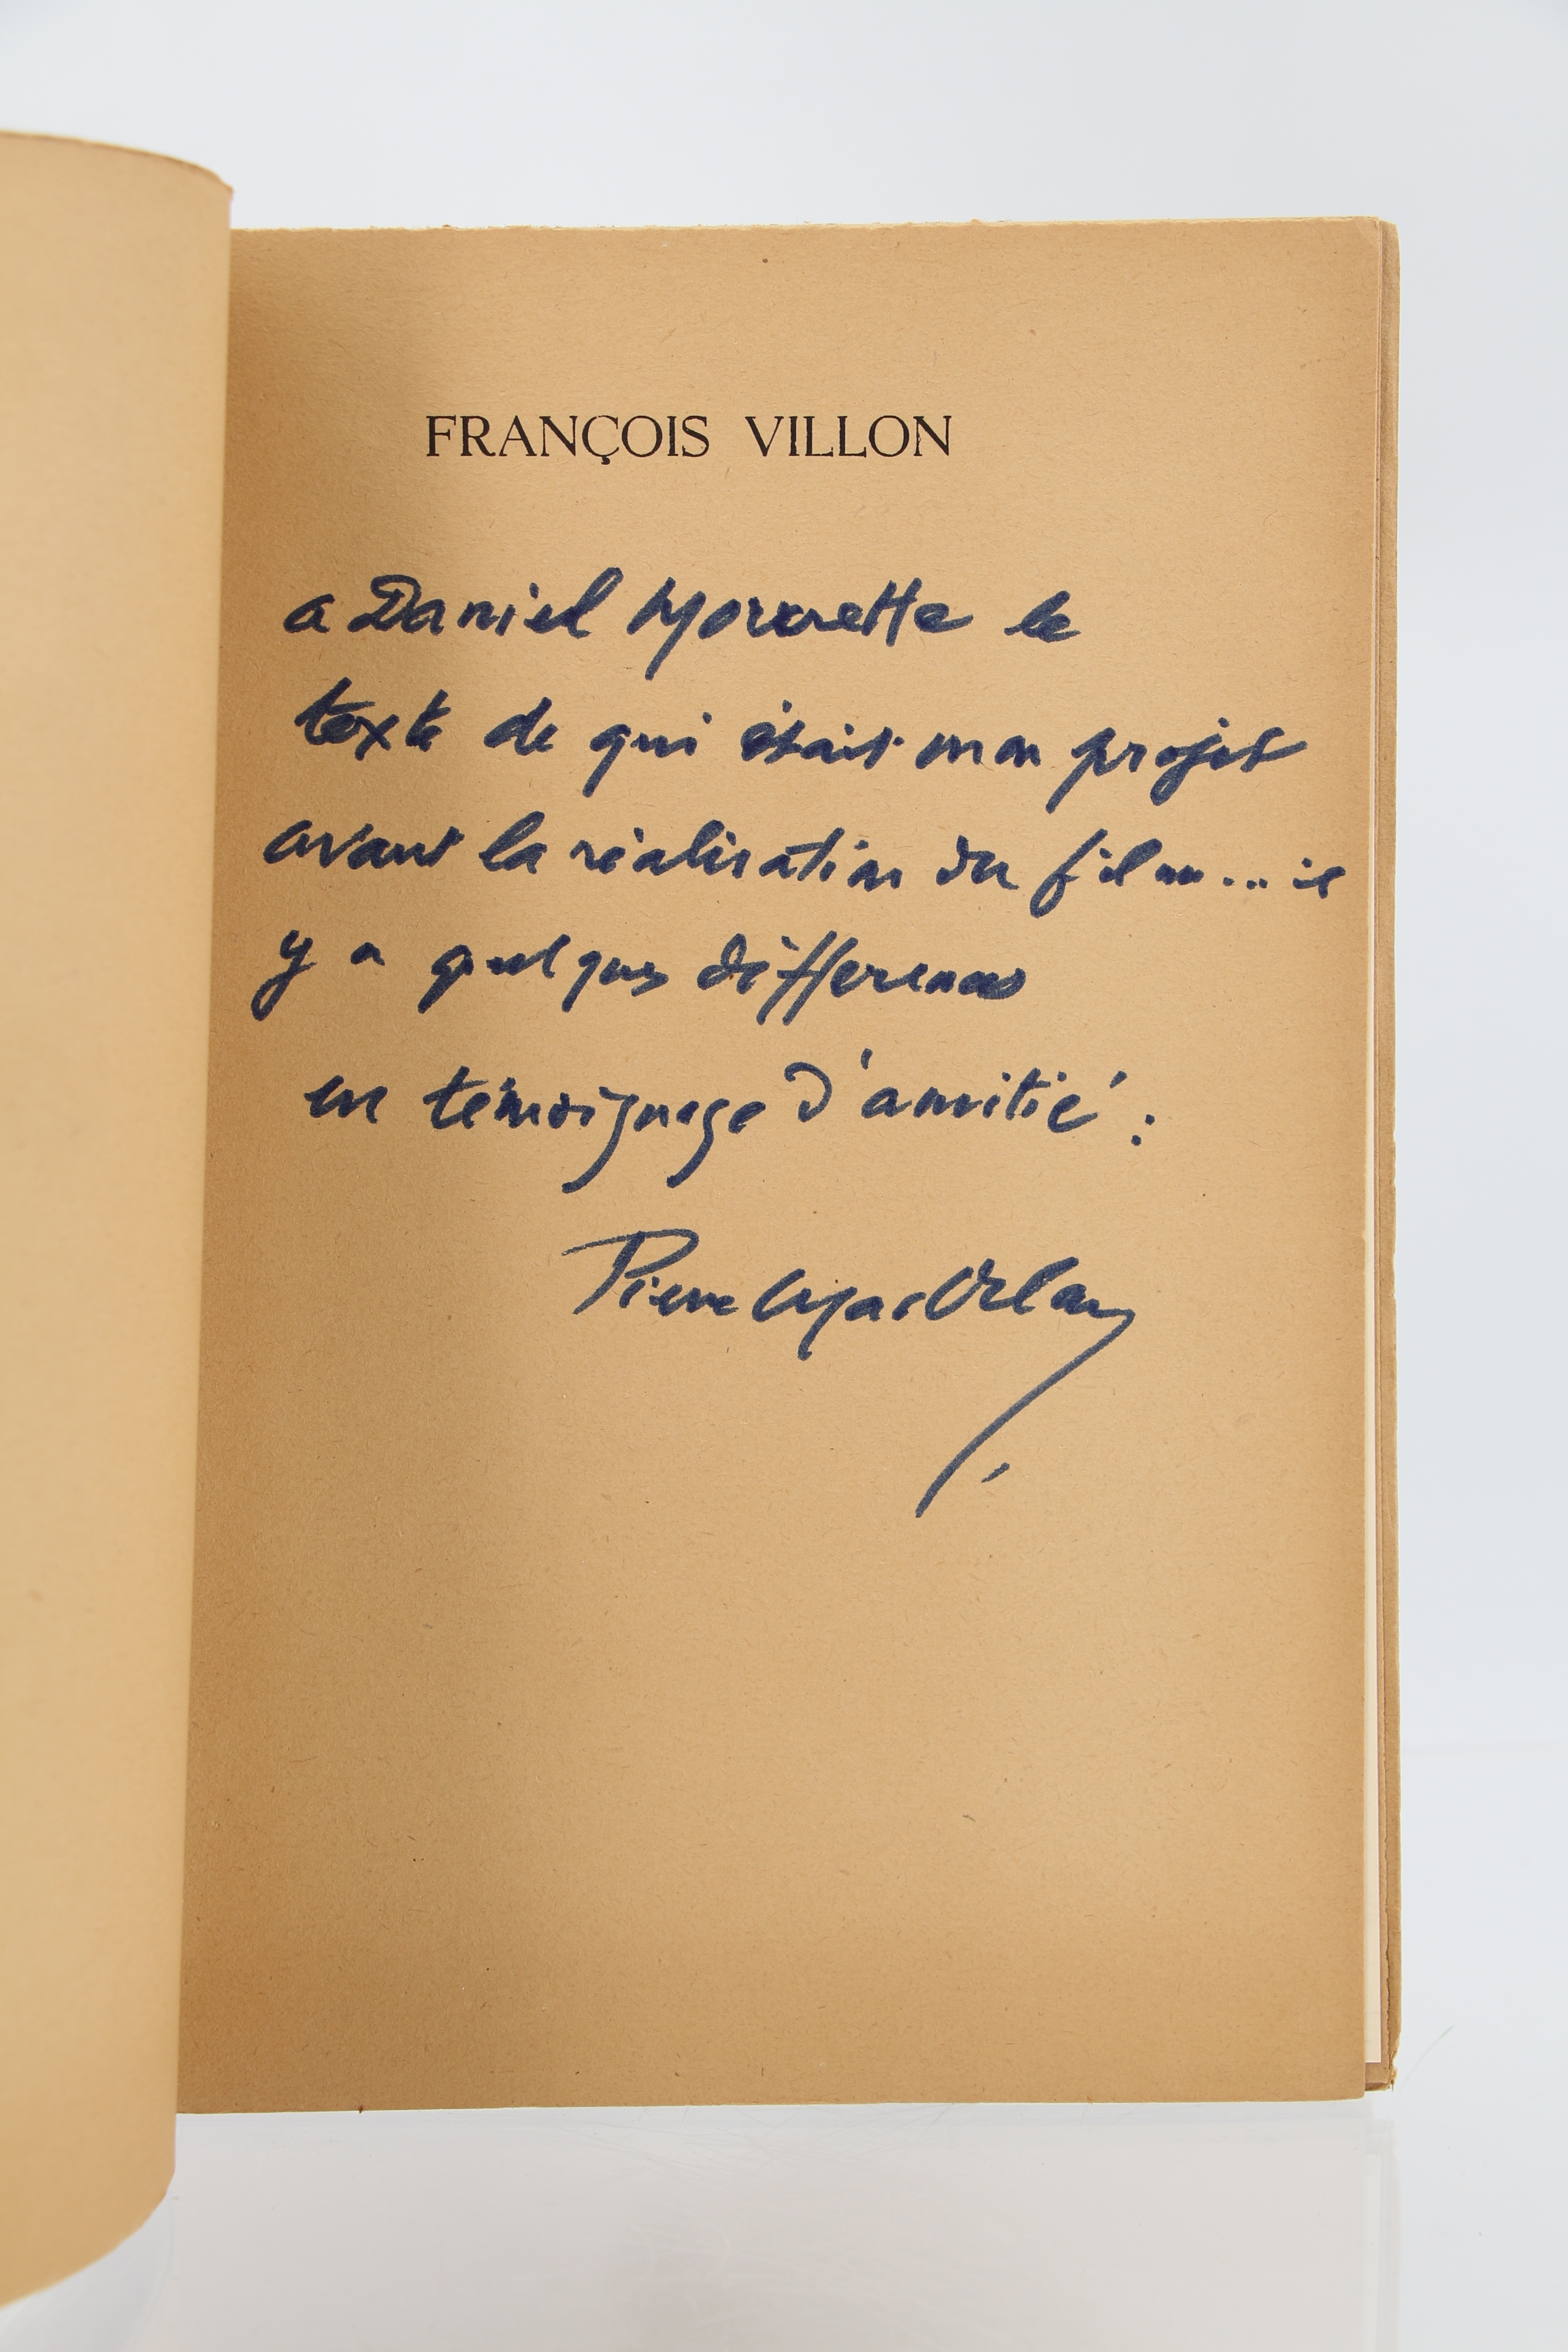 FRANÇOIS VILLON
a Daniel le
texte de qui était mon projet
avant la réalisation du film... il
y a quelques differences
en témoignage d'amitié :
Pierre Mac Orlan